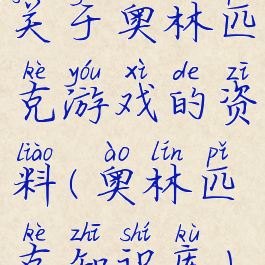 关于奥林匹
kè yóu xì de zī
克游戏的资
liào ào lín pǐ
料(奥林匹
kè zhī shí kù
克知识库)